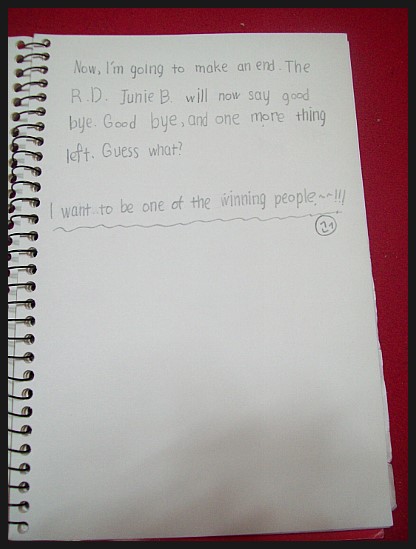 Now, I'm going to make an end. The
R.D. Junie B. will now say good
bye. Good bye, and one more thing
left. Guess what?
I want to be one of the winning people.~~!!!